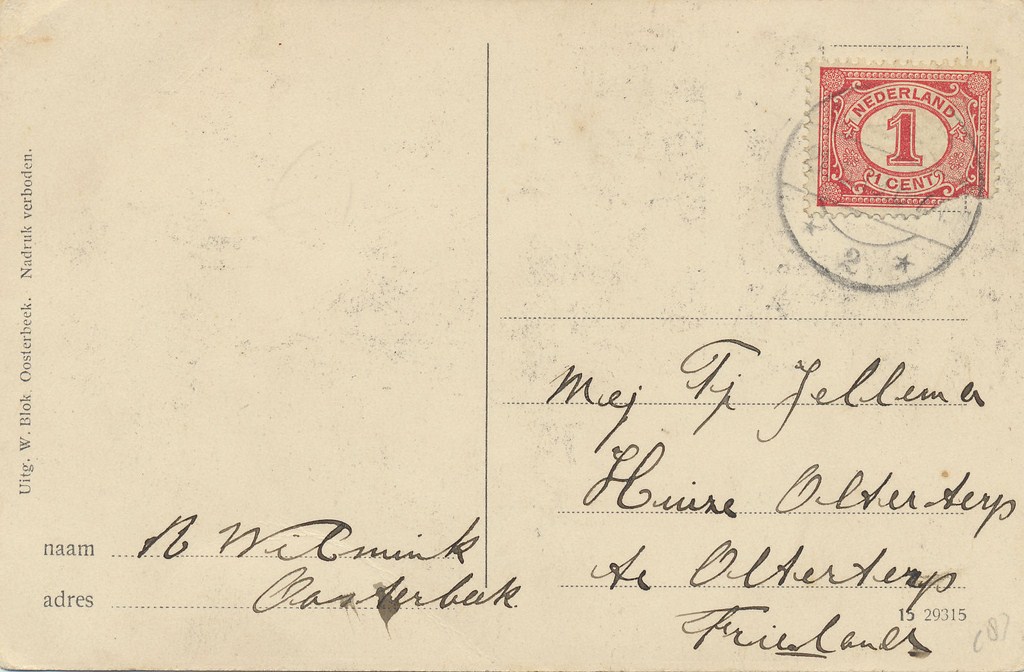 Uitg. W. Blok Oosterbeek. Nadruk verboden.
NEDERLAND
1
1 CENT
2
Mej Tj Jellema
Huize Olterterp
te Olterterp
Friesland
naam R Wilmink
adres Oosterbeek
15 29315
(8)